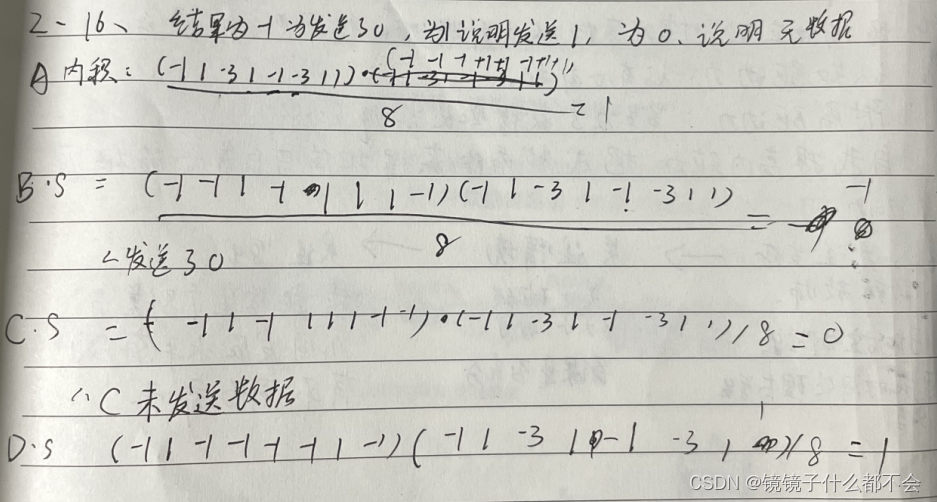 2-16、 结果为-1为发送了0,为1说明发送1,为0、说明无数据
A内积: (-1 1 -3 1 -1 -3 1 1)·(-1 -1 -1 +1 +1 -1 +1 +1)
8 = 1
B·S = (-1 -1 1 -1 1 1 1 -1)(-1 1 -3 1 -1 -3 1 1)
8 = -1
∴发送了0
C·S = (-1 1 -1 1 1 1 -1 -1)·(-1 1 -3 1 -1 -3 1 1)/8 = 0
∴C未发送数据
D·S (-1 1 -1 -1 -1 -1 1 -1)(-1 1 -3 1 -1 -3 1 1)/8 = 1
CSDN @镜镜子什么都不会